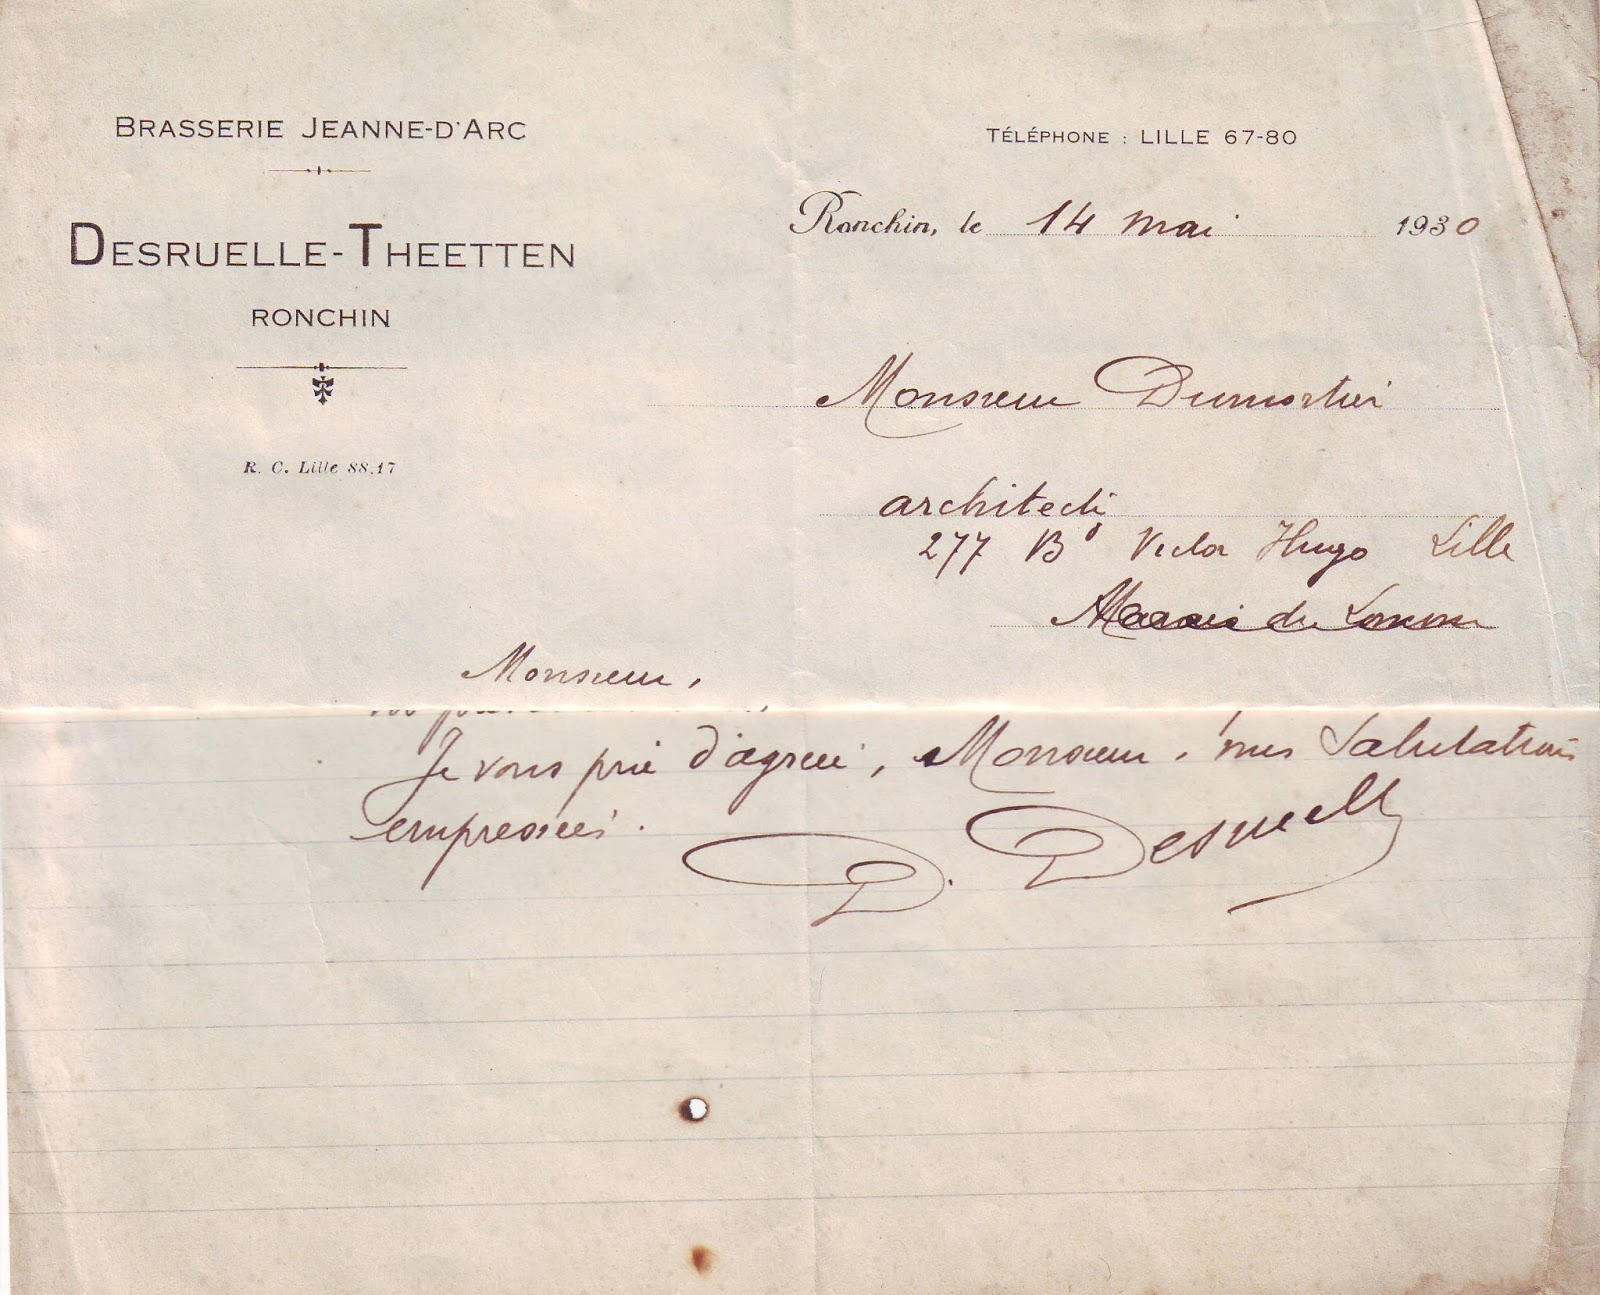 BRASSERIE JEANNE-D'ARC
DESRUELLE-THEETTEN
RONCHIN
R. C. Lille 88.17
TÉLÉPHONE : LILLE 67-80
Ronchin, le 14 mai 1930
Monsieur Dumortier
architecte
277 Bd Victor Hugo Lille
Marais de Lomme
Monsieur,
Je vous prie d'agréer, Monsieur, mes Salutations
empressées.
D. Desruelle